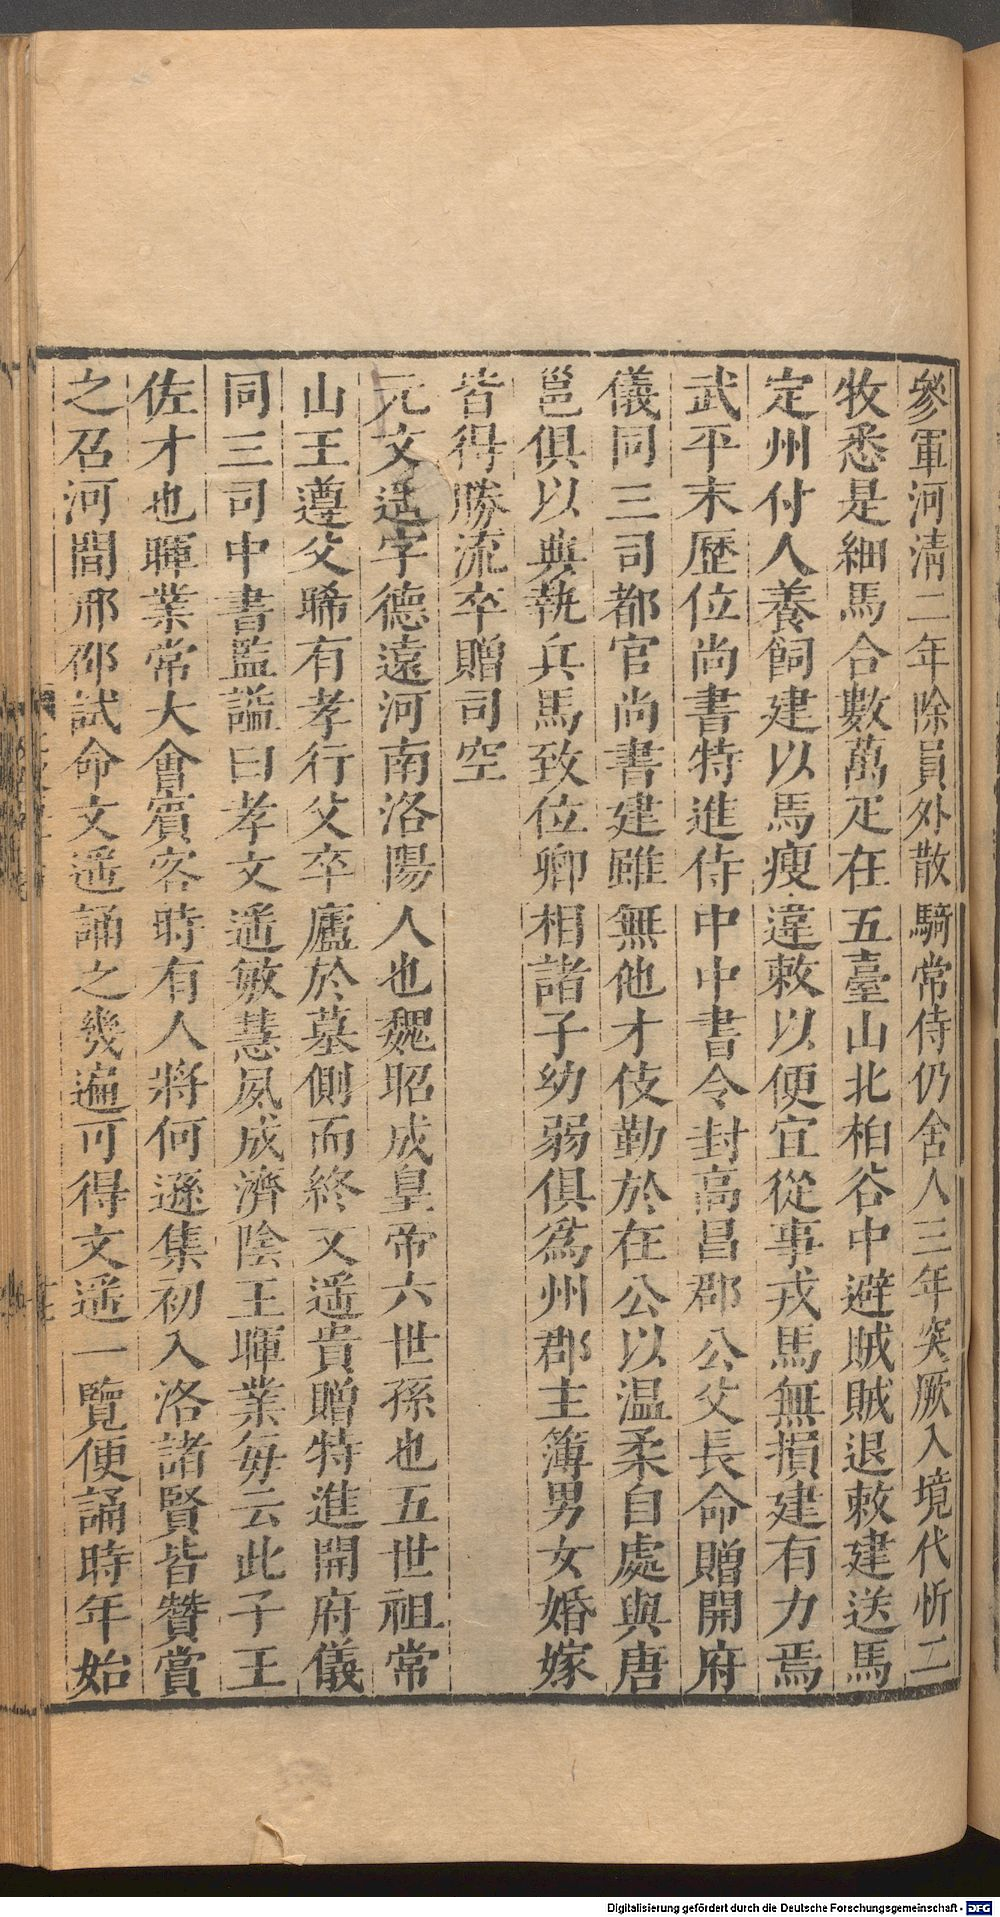 參軍河清二年除員外散騎常侍仍舍人三年突厥入境代忻二
牧悉是細馬合數萬疋在五臺山北柏谷中避賊賊退敕建送馬
定州付人養飼建以馬瘦違敕以便宜從事戎馬無損建有力焉
武平末歷位尚書特進侍中中書令封高昌郡公父長命贈開府
儀同三司都官尚書建雖無他才伎勤於在公以温柔自處與唐
邕俱以典執兵馬致位卿相諸子幼弱俱爲州郡主簿男女婚嫁
皆得勝流卒贈司空
元文遥字德遠河南洛陽人也魏昭成皇帝六世孫也五世祖常
山王遵父晞有孝行父卒廬於墓側而終文遥貴贈特進開府儀
同三司中書監謚曰孝文遥敏慧夙成濟陰王暉業每云此子王
佐才也暉業常大會賓客時有人將何遜集初入洛諸賢皆贊賞
之召河間邢邵試命文遥誦之幾遍可得文遥一覽便誦時年始
Digitalisierung gefördert durch die Deutsche Forschungsgemeinschaft - DFG